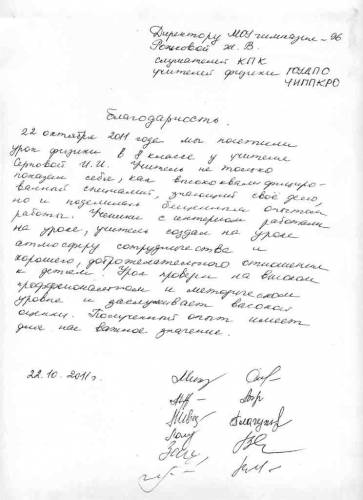 Директору МОУ гимназии-96
Рожковой Ж. В.
слушателей КПК
учителей физики ЮЛДПС
ЧИППКРО
Благодарность.
22 октября 2011 года мы посетили
урок физики в 8 классе у учителя
И.И. Учитель не только
показал себя, как высококвалифициро-
ванный специалист, знающий своё дело,
но и поделилась бесценным опытом
работы. Ученики с интересом работали
на уроке, учитель создал на уроке
атмосферу сотрудничества и
хорошего, доброжелательного отношения
к детям. Урок проведен на высоком
профессиональном и методическом
уровне и заслуживает высокой
оценки. Полученный опыт имеет
для нас важное значение.
22.10.2011г.